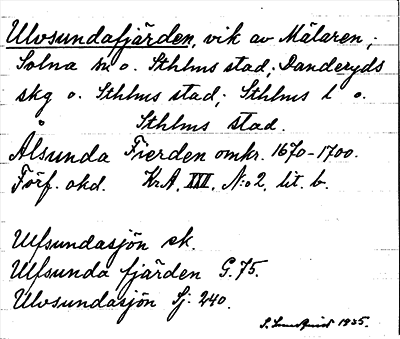 Ulvsundafjärden, vik av Mälaren;
Solna sn o. Sthlms stad; Danderyds
skg o. Sthlms stad; Sthlms l o.
Sthlms stad.
Ålsunda Fierden omkr. 1670-1700.
Förf. okd. KrA. XXX. N:o 2. lit. b.
Ulfsundasjön ek.
Ulfsunda fjärden G. 75.
Ulvsundasjön Sj. 240.
1935.